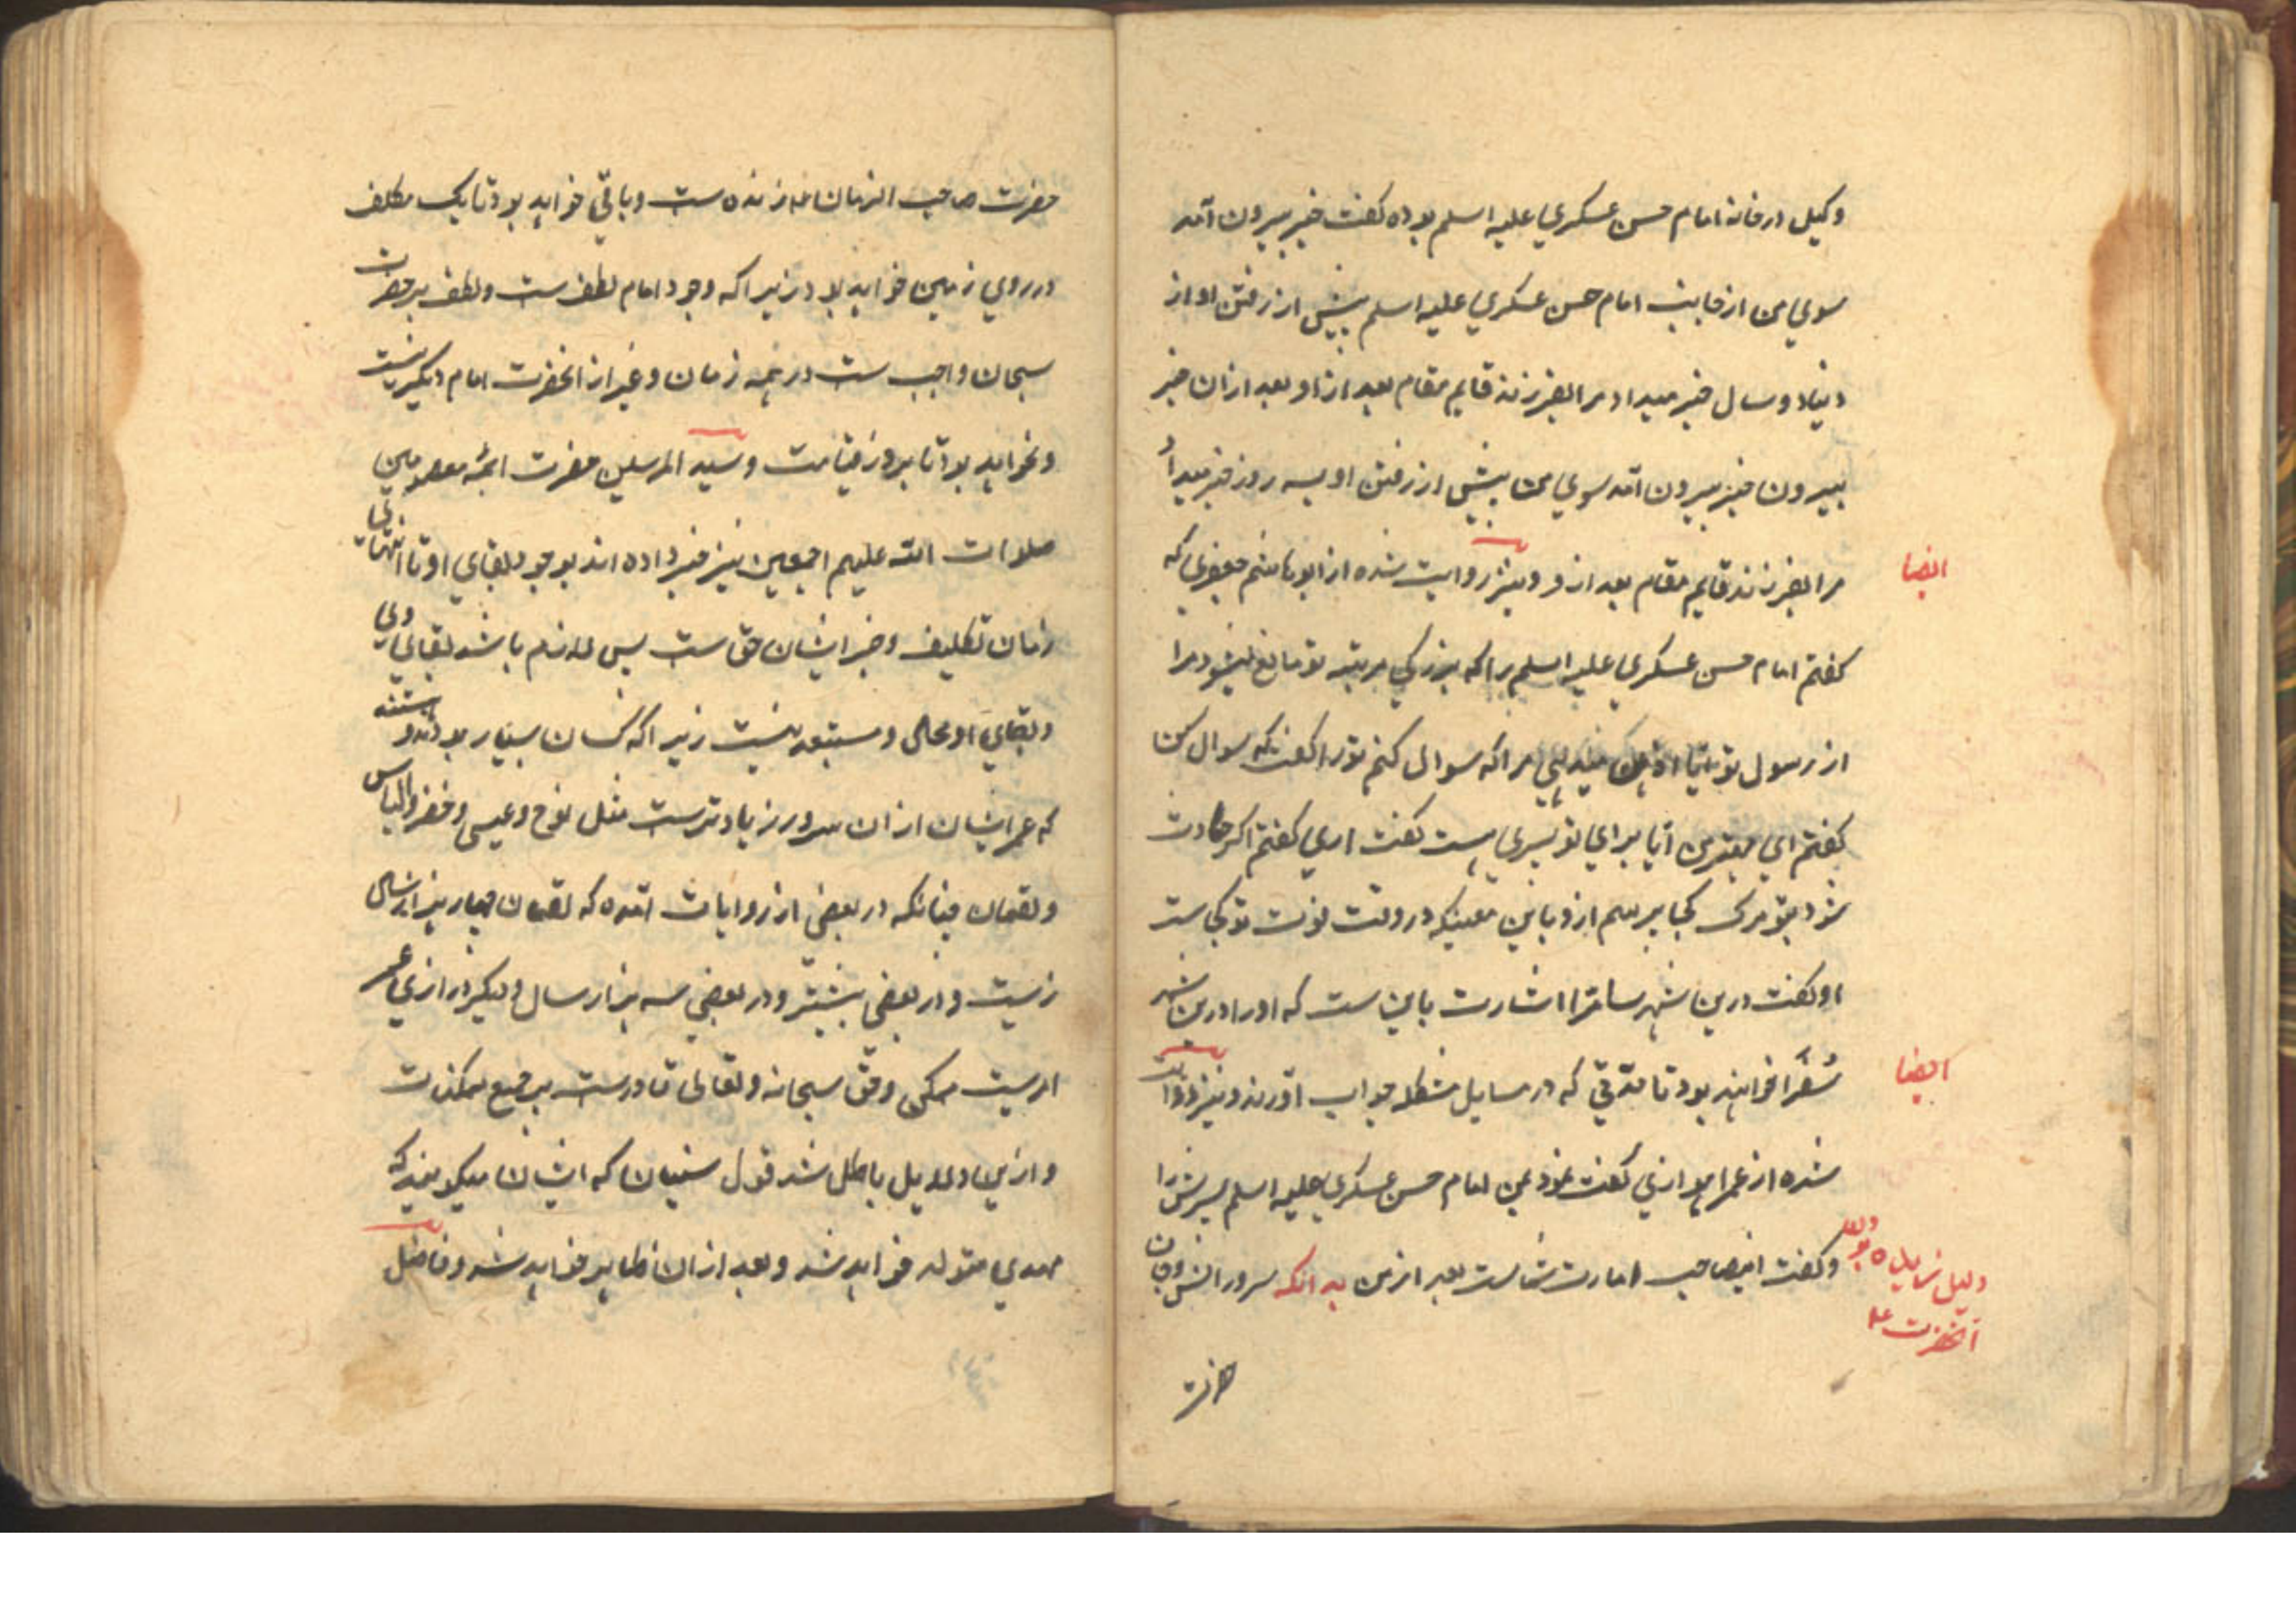 وکیل در خانه امام حسن عسکری علیه اسلم بوده گفت خبر بیرون آمد
سوی من از جانب امام حسن عسکری علیه اسلم پیش از رفتن او از
دنیا دو سال خبر میداد مرا بفرزند قایم مقام بعد از او بعد ازان خبر
بیرون خبر بیرون آمد سوی من پیش از رفتن او بسه روز خبر میداد
مرا بفرزند قایم مقام بعد از و و نیز روایت شده از ابو هاشم جعفری که
ایضا
گفتم امام حسن عسکری علیه اسلم را که بزرگی مرتبه تو مانع میشود مرا
از سوال تو آیا اذن میدهی مرا که سوال کنم تو را گفت که سوال کن
گفتم ای مهتر من آیا برای تو پسری هست گفت اری گفتم اگر حادث
شود بتو مرگ کجا بپرسم ازو باین معنیکه در وقت فوت تو کجاست
او گفت درین شهر سامرا اشارت باین ست که او را درین شهر
سُفَرا خواهند بود تا مدتی که در مسایل مشکله جواب آورند و نیز روایت
ایضا
شده از عمر اهوازی گفت نمود بمن امام حسن عسکری علیه اسلم پسرش را
و گفت اینصاحب امارت شماست بعد از من بدانکه سرور انس و جان
دلیل آنحضرت ع
حضرت
حضرت صاحب الزمان زنده ست و باقی خواهد بود تا یک مکلف
در روی زمین خواهد بود زیرا که وجود امام لطف ست و لطف بر حضرت
سبحان واجب ست در همه زمان و غیر از انحضرت امام دیگر نیست
و نخواهد بود تا بروز قیامت و سید المرسلین حضرت ایمه معصومین
صلوات الله علیهم اجمعین نیز خبر داده اند بوجود بقای او تا انتهای
زمان تکلیف و خبر ایشان حق ست پس لازم باشد بقای وی
و بقای او محال و مستبعد نیست زیرا که کسان بسیار بودند و هستند
که عمر ایشان ازان سرور زیادترست مثل نوح و عیسی و خضر و الیاس
و لقمان چنانکه در بعضی از روایات آمده که لقمان چهار هزار سال
زیست و از بعضی بیشتر و در بعضی سه هزار سال و دیگر درازی عمر
امریست ممکن و حق سبحانه و تعالی قادرست بر جمیع ممکنات
و ازین دلایل باطل شد قول سنیان که ایشان میگویند که
مهدی متولد خواهد شد و بعد ازان ظاهر خواهد شد و فاضل